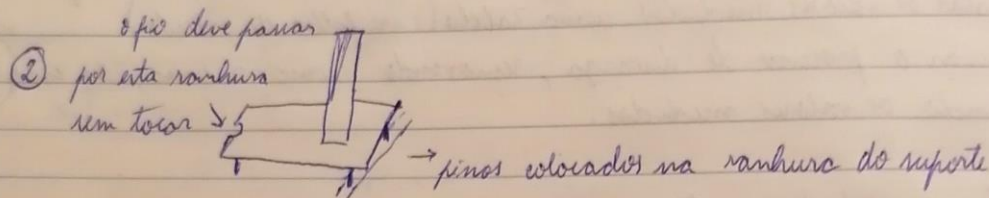 o fio deve passar
② por esta ranhura
sem tocar
→ pinos colocados na ranhura do suporte